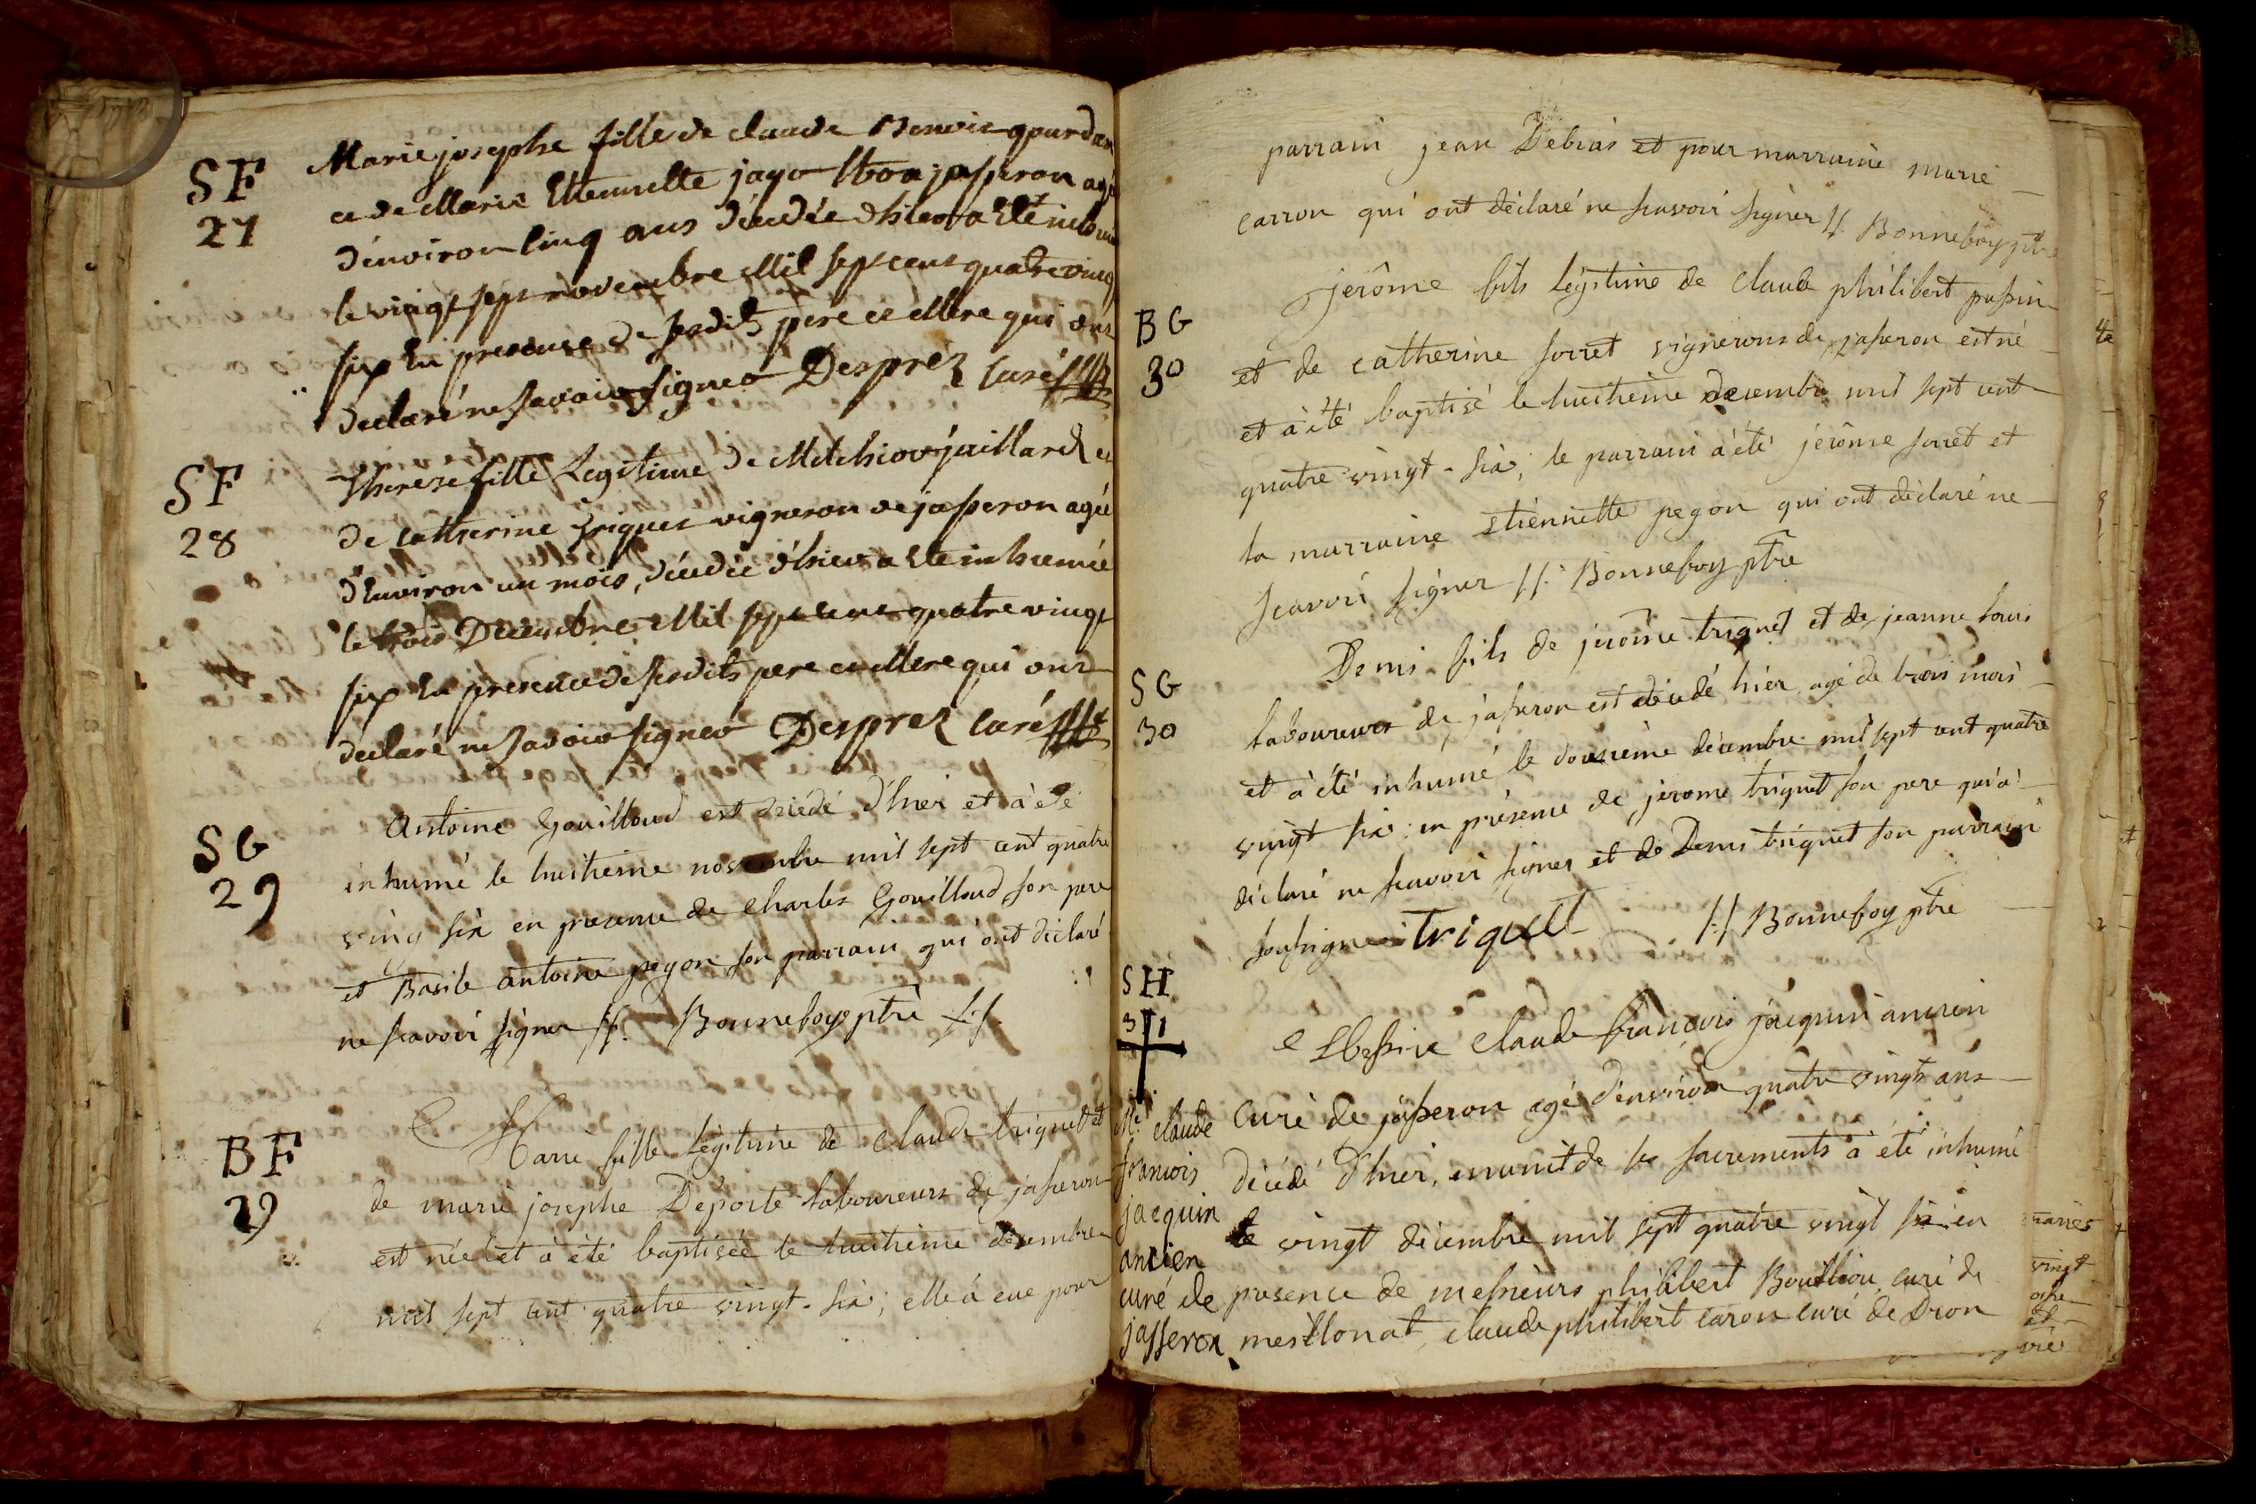 SF
27
Marie josephe fille de claude Benoit gourdan
et de Marie Etiennette jayr de jasseron agé
d'environ cinq ans décédée d'hier a Eté inhumé
le vingt sept novembre Mil sept cent quatre vingt
six En presence de sesdits pere et Mere qui ont
declaré ne savoir signer Desprez curé
SF
28
Therese fille Legitime de Melchior jaillard et
de catherine triquet vigneron de jasseron agée
d'Environ un mois, décédée d'hier a Eté inhumée
le trois Decembre Mil sept cent quatre vingt
six En presence de sesdits pere et Mere qui ont
declaré ne savoir signer Desprez curé
SG
29
Antoine Gouilloud est décédé d'hier et à été
inhumé le huitieme novembre mil sept cent quatre
ving six en presence de Charles Gouilloud son pere
et Basile antoine pegon son parrain qui ont déclaré
ne scavoir signer //. Bonnefoy ptre //
BF
29
Marie fille Légitime de Claude triquet et
de marie josephe Deporte laboureurs de jasseron
est née et à été baptisée le huitieme décembre
mil sept cent quatre vingt-six; elle à eue pour
parrain jean Debias et pour marraine marie
carron qui ont déclaré ne scavoir signer //. Bonnefoy ptre
BG
30
jerôme fils légitime de Claude philibert passin
et de catherine sorret vignerons de jasseron est né
et à été baptisé le huitieme decembre mil sept cent
quatre vingt-six; le parrain à été jerôme sorret et
la marraine etiennette pegon qui ont déclaré ne
scavoir signer //. Bonnefoy ptre
SG
30
Denis fils de jerôme triquet et de jeanne
laboureurs de jasseron est décédé hier agé de trois mois
et à été inhumé le douzieme décembre mil sept cent quatre
vingt six: en présence de jerome triquet son pere qui à
déclaré ne scavoir signer et de Denis triquet son parrain
soussigné triquet // Bonnefoy ptre
SH
31
Mr. claude
francois
jacquin
ancien
curé de
jasseron
Messire Claude françois jacquin ancien
Curé de jasseron agé d'environ quatre vingts ans
décédé d'hier, emunit de ses sacrements à été inhumé
le vingt décembre mil sept quatre vingt six: en
presence de messieurs philibert Bouthiou curé de
meillonat, claude philibert caron curé de Dron